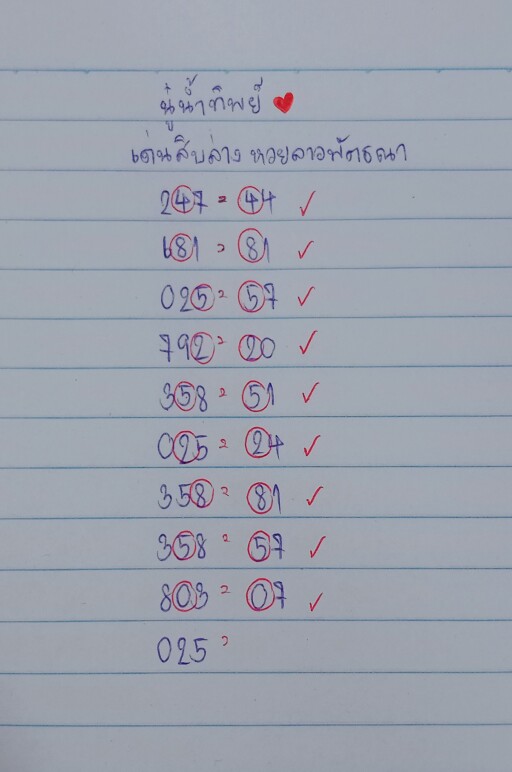 ปู่น้ำทิพย์ ❤
เด่นสิบล่าง หวยลาวพัฒนา
247 = 44 ✓
681 = 81 ✓
025 = 57 ✓
792 = 20 ✓
358 = 51 ✓
025 = 24 ✓
358 = 81 ✓
358 = 57 ✓
803 = 07 ✓
025 =